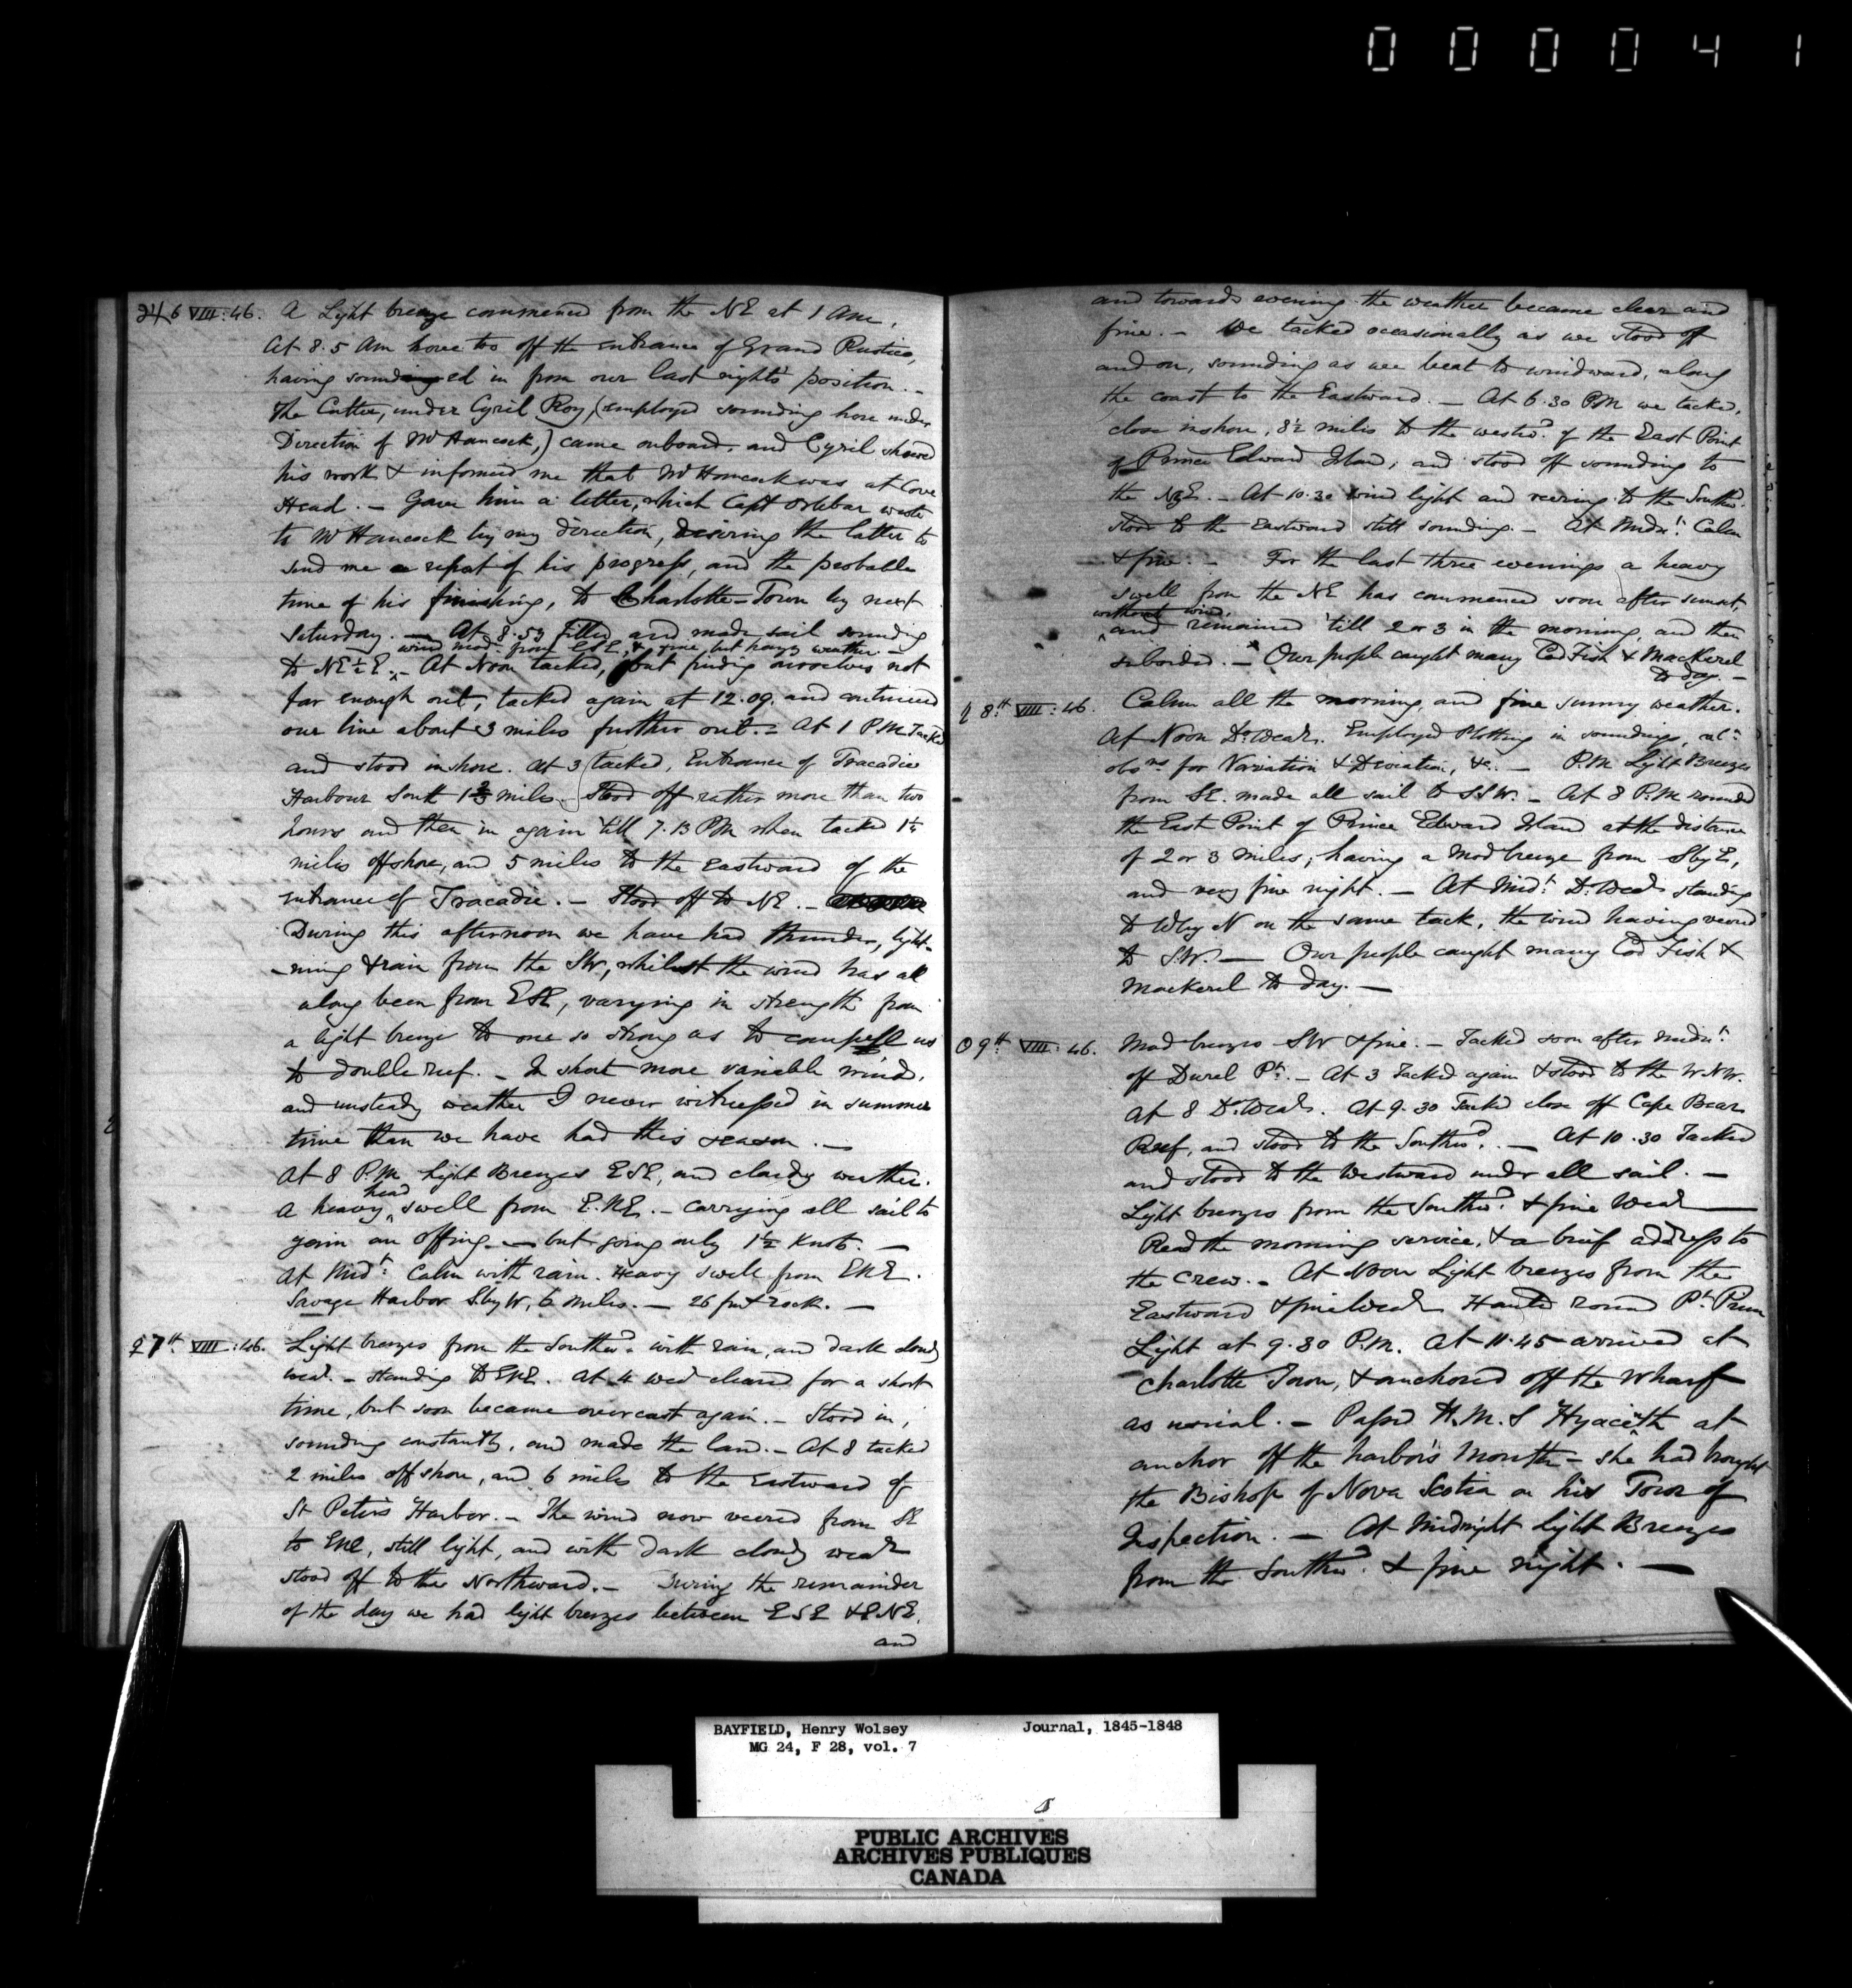 000041
♃ 6 VIII:46. A Light breeze commenced from the NE at 1 Am,
At 8.5 Am hove too off the entrance of Grand Rustico,
having sounded in from our last nights position. –
The Cutter, under Cyril Roy, (employed sounding here under
Direction of Mr Hancock,) came onboard. and Cyril shewed
his work & informed me that Mr Hancock was at Cove
Head. – Gave him a letter, which Capt Orlebar wrote
to Mr Hancock by my direction, desiring the latter to
send me a report of his progress, and the probable
time of his finishing, to Charlotte-Town by next
Saturday. — At 8.53 filled and made sail sounding
wind mod. from ESE, & fine, but hazy weather. –
to NE½E. – At Noon tacked, but finding ourselves not
far enough out, tacked again at 12.09. and continued
our line about 3 miles further out. – At 1 P.M. Tacked
and stood inshore. At 3 tacked, Entrance of Tracadie
Harbour South 1⅔ miles. Stood off rather more than two
hours and then in again 'till 7.13 PM when tacked 1¼
miles offshore, and 5 miles to the Eastward of the
entrance of Tracadie. – Stood off to NE. –
During this afternoon we have had thunder, light-
-ning & rain from the SW, whilst the wind has all
along been from ESE, varying in strength from
a light breeze to one so strong as to compell us
to double reef. – In short more variable winds,
and unsteady weather I never witnessed in summer
time than we have had this season. —
At 8 P.M. Light Breezes ESE, and cloudy weather.
head
A heavy ^ swell from E.N.E. – Carrying all sail to
gain an offing — but going only 1½ Knots. —
At Midt. Calm with rain. Heavy swell from ENE.
Savage Harbor SbyW, 6 miles. — 26 fms rock. —
♀ 7th VIII:46. Light breezes from the Southwd. with rain, and dark cloudy
wear. – Standing to ENE. At 4 wear cleared for a short
time, but soon became overcast again. – Stood in,
sounding constantly, and made the land. – At 8 tacked
2 miles off shore, and 6 miles to the Eastward of
St Peters Harbor. – The wind now veered from SE
to ENE, still light, and with dark cloudy wear
stood off to the Northward. – During the remainder
of the day we had light breezes between ESE & ENE,
and
and towards evening the weather became clear and
fine. – We tacked occasionally as we stood off
and on, sounding as we beat to windward, along
the coast to the Eastward. – At 6.30 PM we tacked,
close inshore, 8½ miles to the westwd. of the East Point
of Prince Edward Island, and stood off sounding to
the NEE. – At 10.30 wind light and veering to the Southwd.
stood to the Eastward still sounding. – At Midnt. Calm
& fine. – For the last three evenings a heavy
swell from the NE has commenced soon after sunset,
without wind,
^ and remained 'till 2 or 3 in the morning, and then
subsided. – Our people caught many Cod Fish & Mackerel
to day. –
♄ 8th VIII:46. Calm all the morning, and fine sunny weather.
At Noon Do. Wear. Employed Plotting in soundings, calg.
obsns for Variation & Deviation, &c. – P.M. Light Breezes
from SE. made all sail to SSW. – At 8 P.M. rounded
the East Point of Prince Edward Island at the distance
of 2 or 3 miles; having a Mod breeze from SbyE,
and very fine night. – At Midt. Do. Wear standing
to WbyN on the same tack, the wind having veered
to S.W. — Our people caught many Cod Fish &
Mackerel to day. —
☉ 9th VIII:46. Mod breezes SW & fine. – Tacked soon after Midnt.
off Durel Pt. – At 3 Tacked again & stood to the W.N.W.
At 8 Do. Wear. At 9.30 Tacked close off Cape Bear
Reef, and stood to the Southwd. – At 10.30 Tacked
and stood to the Westward under all sail. –
Light breezes from the Southwd. & fine Wear —
Read the morning service, & a brief address to
the Crew. – At Noon Light breezes from the
Eastward & fine Wear Hauled round Pt. Prim
Light at 9.30 P.M. At 11.45 arrived at
Charlotte Town, & anchored off the Wharf
as usual. – Passed H.M.S Hyacinth at
anchor off the harbor's mouth – she had brought
the Bishop of Nova Scotia on his Tour of
Inspection. – At Midnight Light Breezes
from the Southwd. & fine night. —
BAYFIELD, Henry Wolsey Journal, 1845-1848
MG 24, F 28, vol. 7
PUBLIC ARCHIVES
ARCHIVES PUBLIQUES
CANADA